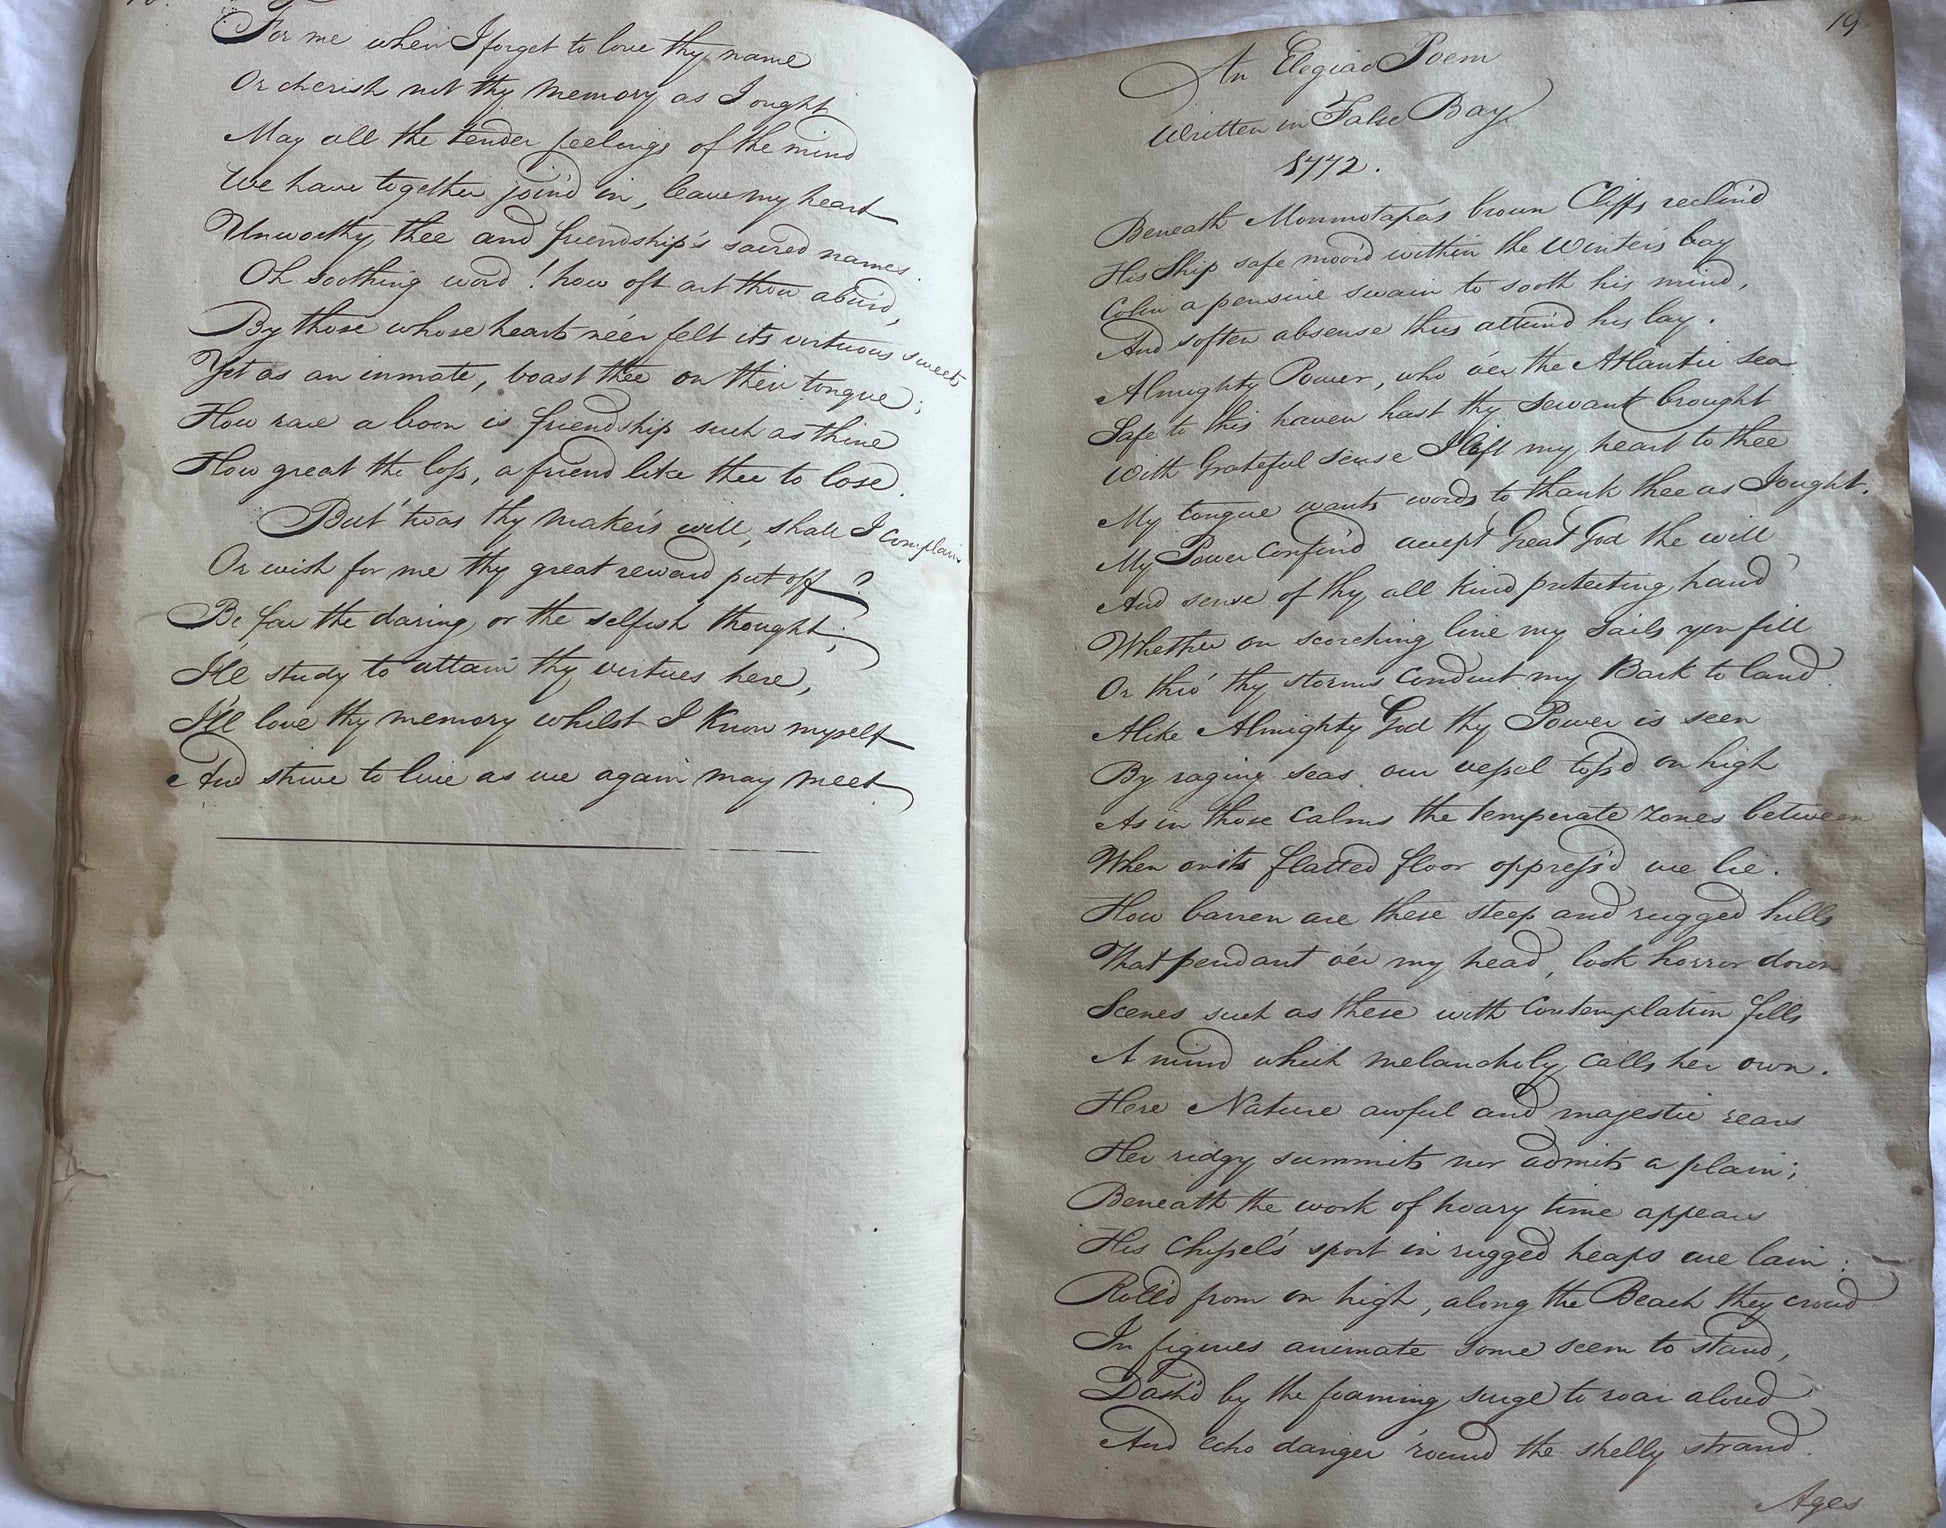 For me when I forget to love thy name
Or cherish not thy memory as I ought
May all the tender feelings of the mind
We have together join'd in, leave my heart
Unworthy thee and friendship's sacred names.
Oh soothing word! how oft art thou abus'd,
By those whose hearts ne'er felt its virtuous sweets
Yet as an inmate, boast thee on their tongue;
How rare a boon is friendship such as thine
How great the loss, a friend like thee to lose.
But 'twas thy maker's will, shall I complain
Or wish for me thy great reward put off?
Be far the daring, or the selfish thought;
I'll study to attain thy virtues here,
I'll love thy memory whilst I know myself
And strive to live as we again may meet
19
An Elegiac Poem
Written in False Bay
1772.
Beneath Monmotapa's brown Cliffs reclin'd
His Ship safe moor'd within the Winter's bay
Colin a pensive swain to sooth his mind,
And soften absense thus attun'd his lay.
Almighty Power, who o'er the Atlantic sea
Safe to this haven hast thy servant brought
With Grateful sense I lift my heart to thee
My tongue wants words to thank thee as I ought.
My Power confin'd accept Great God the will
And sense of thy all kind protecting hand
Whether on scorching line my Sails you fill
Or thro' thy storms conduct my Bark to land
Alike Almighty God thy Power is seen
By raging seas our vessel toss'd on high
As in those Calms the temperate zones between
When on its flatted floor oppress'd we lie.
How barren are these steep and rugged hills
That pendant o'er my head, look horror down
Scenes such as these with contemplation fills
A mind which melancholy calls her own.
Here Nature awful and majestic rears
Her ridgy summits nor admits a plain;
Beneath the work of hoary time appears
His Chissel's sport in rugged heaps are lain:
Roll'd from on high, along the Beach they croud
In figures animate some seem to stand,
Dash'd by the foaming surge to roar aloud
And echo danger 'round the shelly strand.
Ages